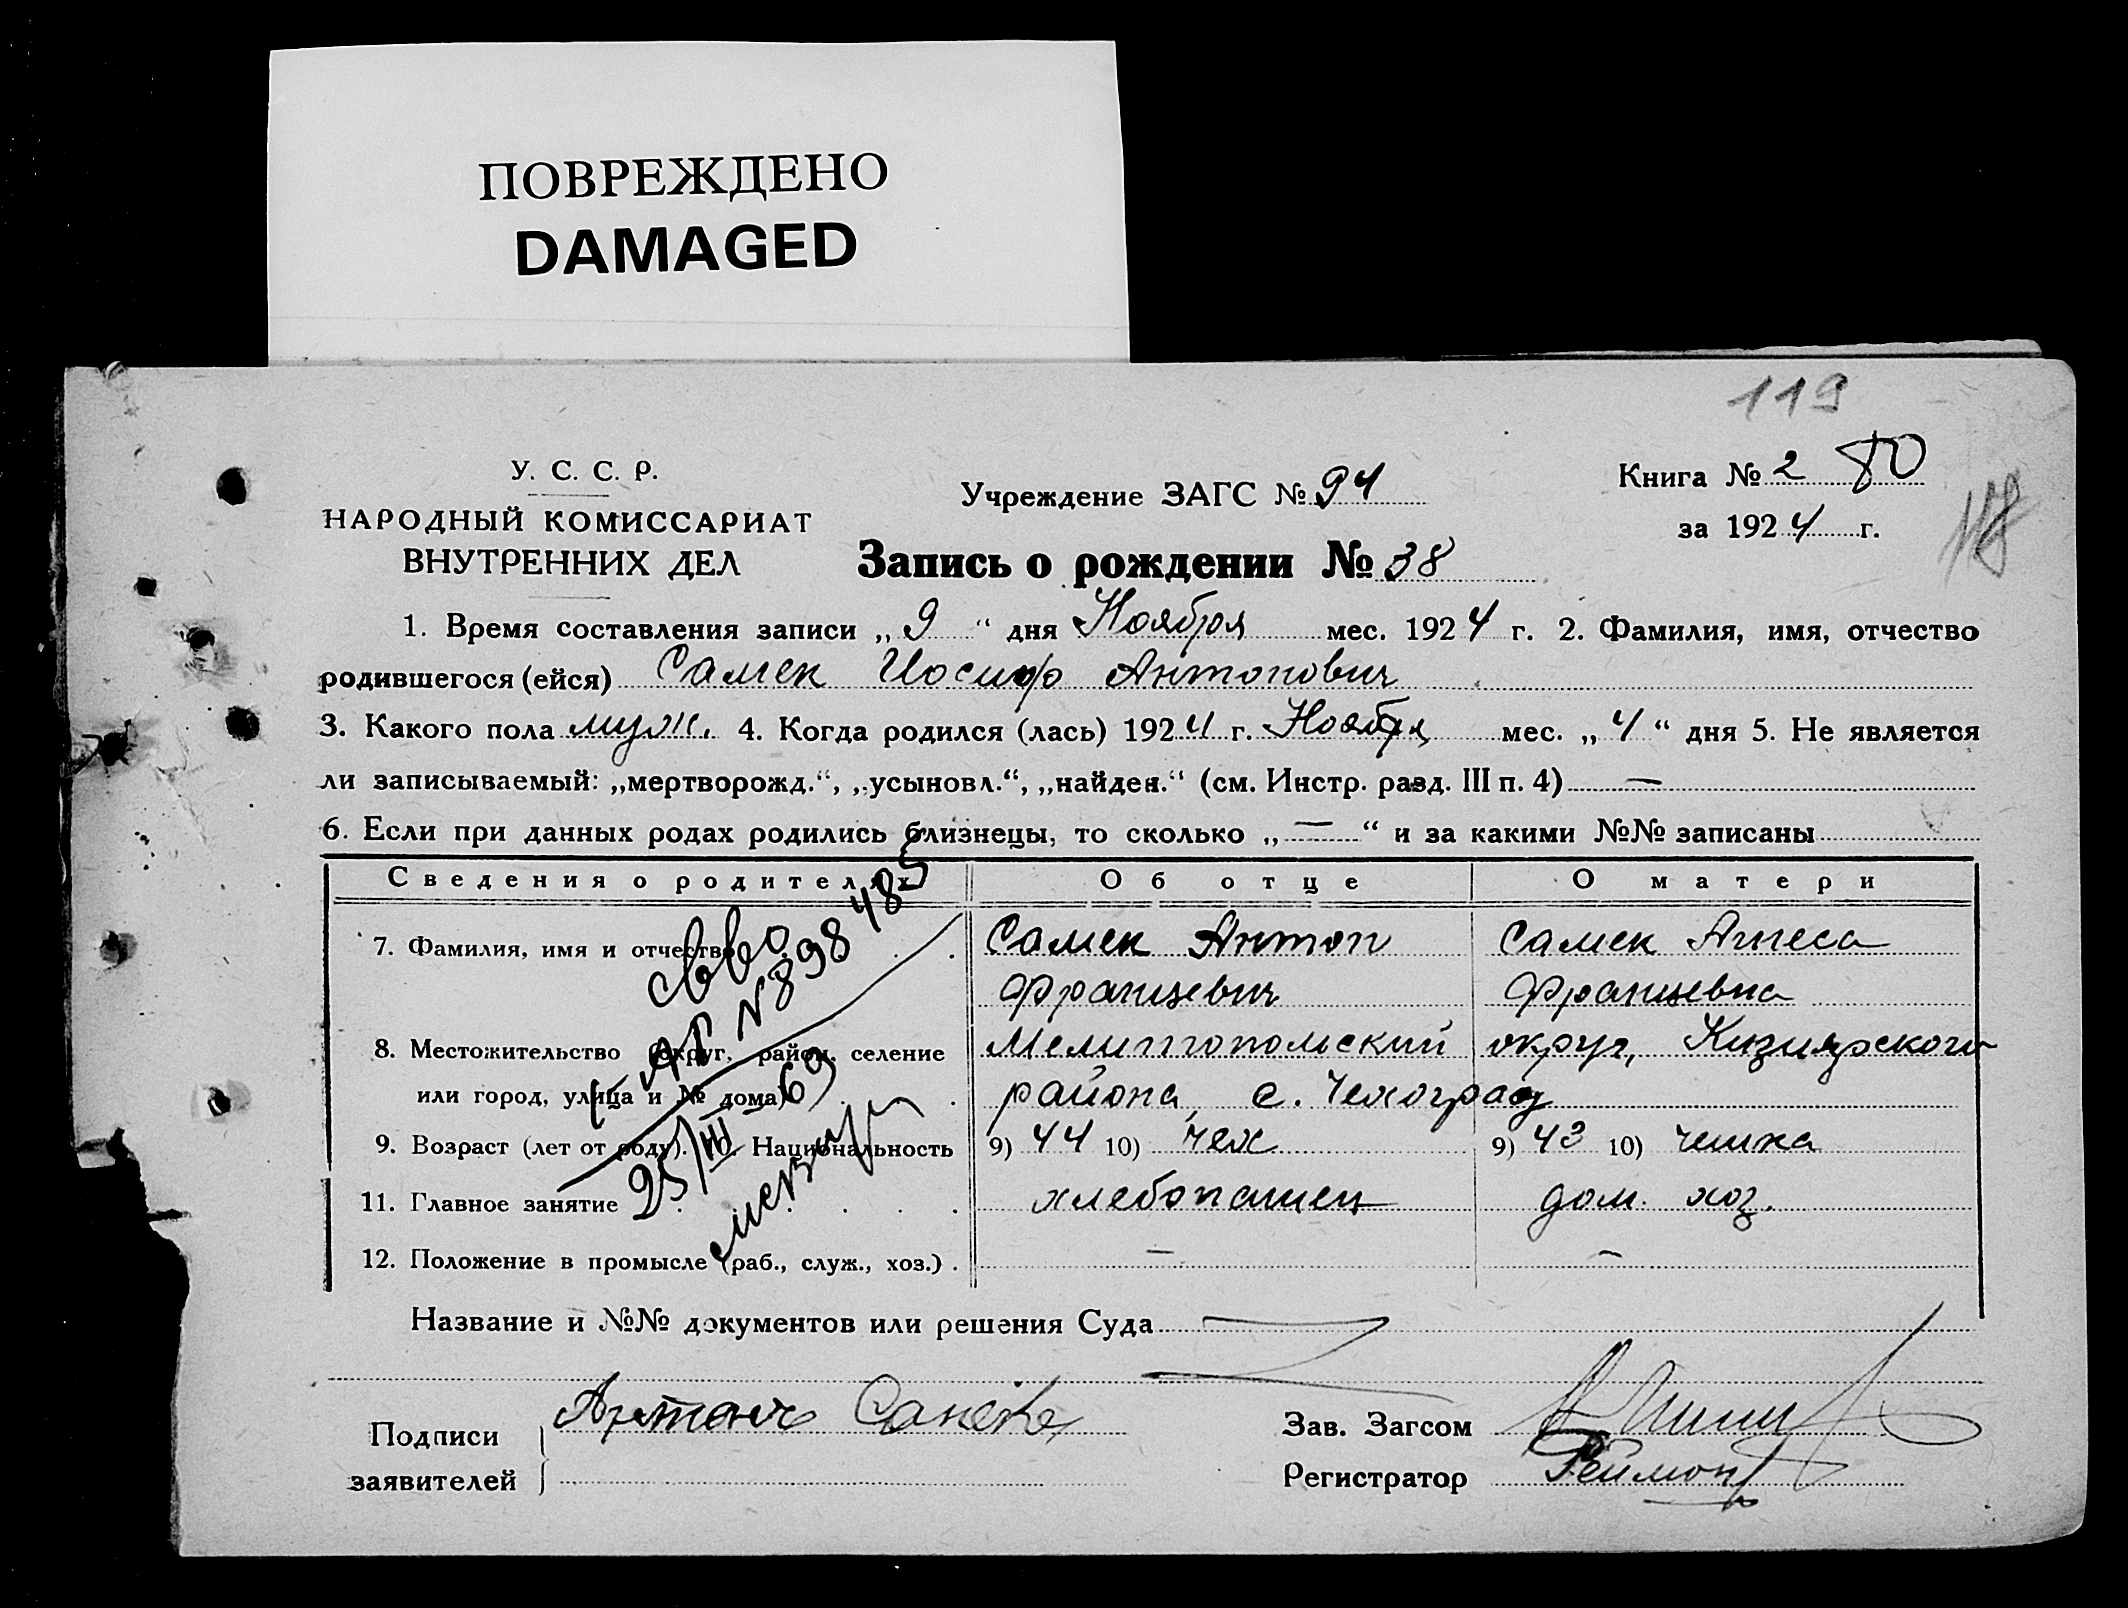 ПОВРЕЖДЕНО
DAMAGED
119
У. С. С. Р.
НАРОДНЫЙ КОМИССАРИАТ
ВНУТРЕННИХ ДЕЛ
Учреждение ЗАГС № 94
Книга № 2 80
за 1924 г.
118
Запись о рождении № 38
1. Время составления записи „ 9 “ дня Ноября мес. 1924 г. 2. Фамилия, имя, отчество
родившегося (ейся) Самек Иосиф Антонович
3. Какого пола муж. 4. Когда родился (лась) 1924 г. Ноября мес. „ 4 “ дня 5. Не является
ли записываемый: „мертворожд.“, „усыновл.“, „найден.“ (см. Инстр. разд. III п. 4) —
6. Если при данных родах родились близнецы, то сколько „ — “ и за какими №№ записаны
Сведения о родителях Об отце О матери
7. Фамилия, имя и отчество Самек Антон Самек Агнеса
Францевич Францевна
8. Местожительство (округ, район, селение Мелитопольский округ, Кизиярского
или город, улица и № дома) района, с. Чехоград
9. Возраст (лет от роду). 10. Национальность 9) 44 10) чех 9) 43 10) чешка
11. Главное занятие хлебопашец дом. хоз.
12. Положение в промысле (раб., служ., хоз.) — —
св-во
I-АП № 898485
25/III-69
Название и №№ документов или решения Суда
Подписи
заявителей
Антон
Зав. Загсом
Регистратор Реймон